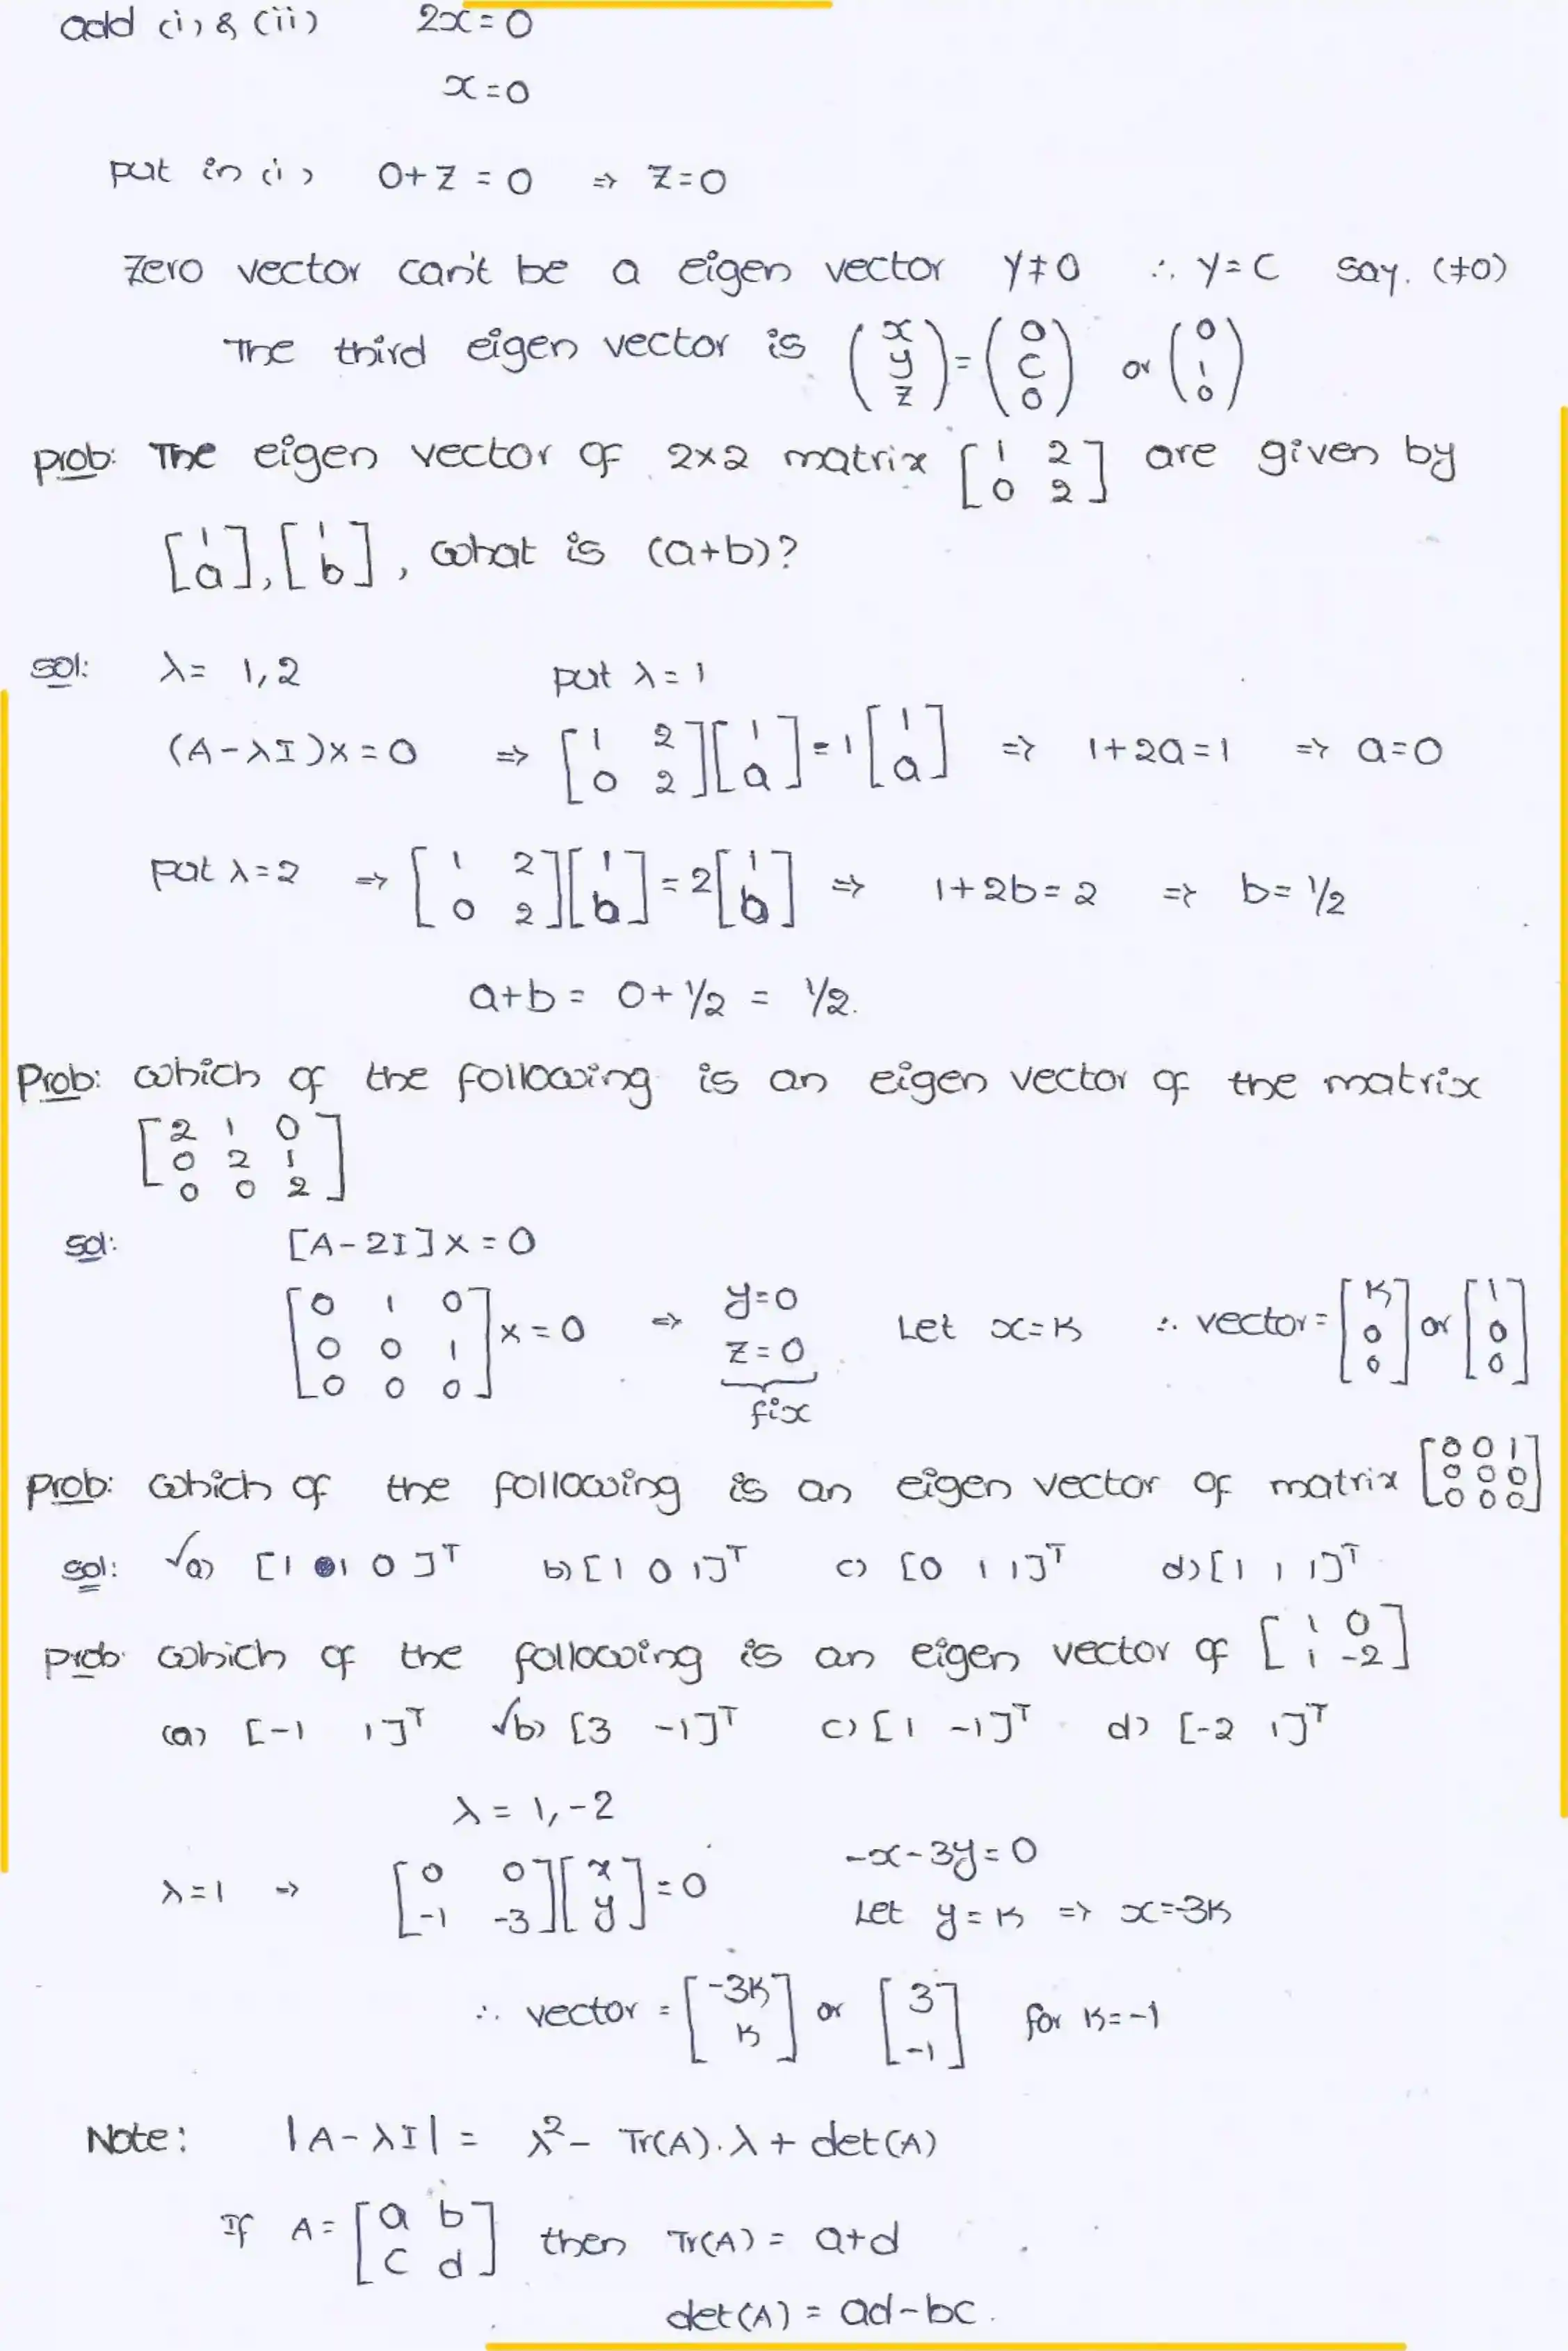 add (i) & (ii) 2x = 0
x = 0
put in (i) 0 + z = 0 ⇒ z = 0
Zero vector can't be a eigen vector y ≠ 0 ∴ y = c say. (≠0)
The third eigen vector is (x y z) = (0 c 0) or (0 1 0)
prob: The eigen vector of 2×2 matrix [1 2; 0 2] are given by
[1; a], [1; b], what is (a+b)?
sol: λ = 1, 2 put λ = 1
(A - λI)x = 0 ⇒ [1 2; 0 2][1; a] = 1[1; a] ⇒ 1 + 2a = 1 ⇒ a = 0
put λ = 2 ⇒ [1 2; 0 2][1; b] = 2[1; b] ⇒ 1 + 2b = 2 ⇒ b = 1/2
a + b = 0 + 1/2 = 1/2.
Prob: which of the following is an eigen vector of the matrix
[2 1 0; 0 2 1; 0 0 2]
sol: [A - 2I] x = 0
[0 1 0; 0 0 1; 0 0 0] x = 0 ⇒ y = 0 z = 0 fix Let x = k ∴ vector = [k; 0; 0] or [1; 0; 0]
Prob: which of the following is an eigen vector of matrix [0 0 1; 0 0 0; 0 0 0]
sol: √a) [1 1 0]ᵀ b) [1 0 1]ᵀ c) [0 1 1]ᵀ d) [1 1 1]ᵀ
prob which of the following is an eigen vector of [1 0; 1 -2]
(a) [-1 1]ᵀ √b) [3 -1]ᵀ c) [1 -1]ᵀ d) [-2 1]ᵀ
λ = 1, -2
λ = 1 ⇒ [0 0; -1 -3][x; y] = 0 -x - 3y = 0
Let y = k ⇒ x = -3k
∴ vector = [-3k; k] or [3; -1] for k = -1
Note: |A - λI| = λ² - Tr(A).λ + det(A)
If A = [a b; c d] then Tr(A) = a+d
det(A) = ad - bc.